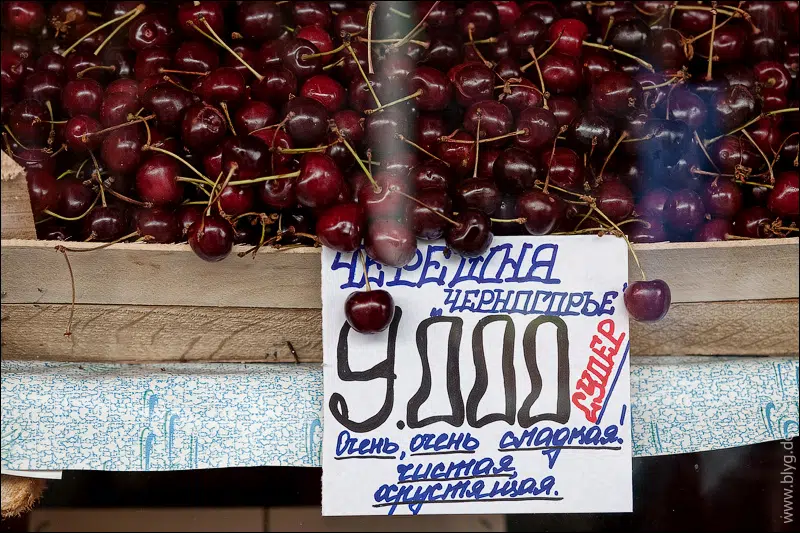 ЧЕРЕШНЯ
"ЧЕРНОГОРЬЕ"
9.000
СУПЕР!
Очень, очень сладкая!
чистая,
хрустящая.